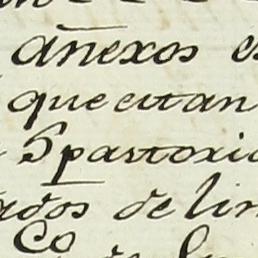 añexos
que citan
Spartoxi
ados de lin
Co de